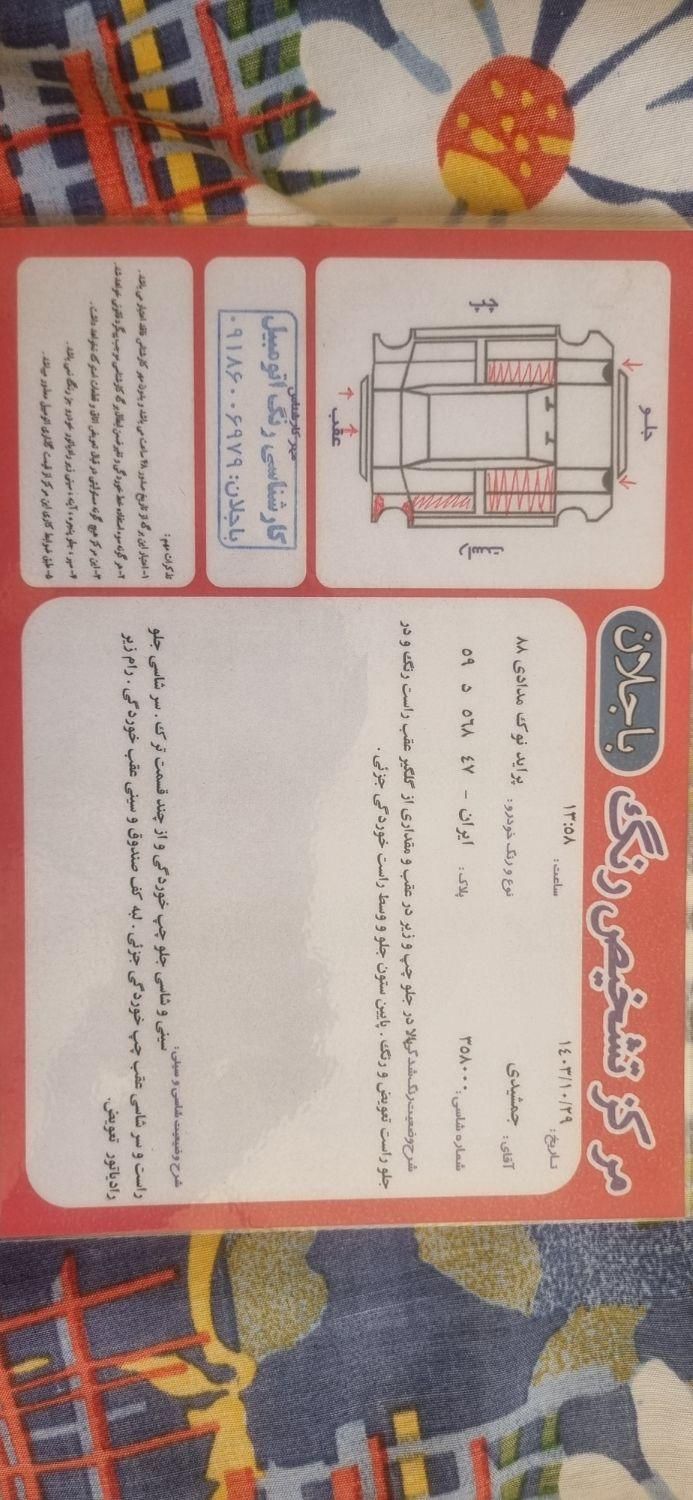 باجلان
مرکز تشخیص رنگ
ساعت: ۱۳:۵۸
تاریخ: ۱۴۰۳/۱۰/۲۹
نوع و رنگ خودرو: پراید نوک مدادی ۸۸
آقای: جمشیدی
پلاک: ایران - ۴۷ ۵۶۸ د ۵۹
شماره شاسی: ۳۵۸۰۰۰
شرح وضعیت رنگ شدگی: بالا در جلو چپ و زیر در عقب و مقداری از گلگیر عقب راست رنگ و در
جلو راست تعویض و رنگ. پایین ستون جلو و وسط راست خوردگی جزئی.
شرح وضعیت شاسی و سینی:
سینی و شاسی جلو چپ خوردگی و از چند قسمت ترک. سر شاسی جلو
راست و سر شاسی عقب چپ خوردگی جزئی. لبه کف صندوق و سینی عقب خوردگی. رام زیر
رادیاتور تعویض.
جلو
چپ
راست
عقب
مهر کارشناس
کارشناسی رنگ اتومبیل
باجلان: ۰۹۱۸۶۰۰۶۹۷۹
تذکرات مهم:
۱- اعتبار این برگه از تاریخ صدور ۴۸ ساعت می باشد و بدون مهر کارشناس فاقد اعتبار می باشد.